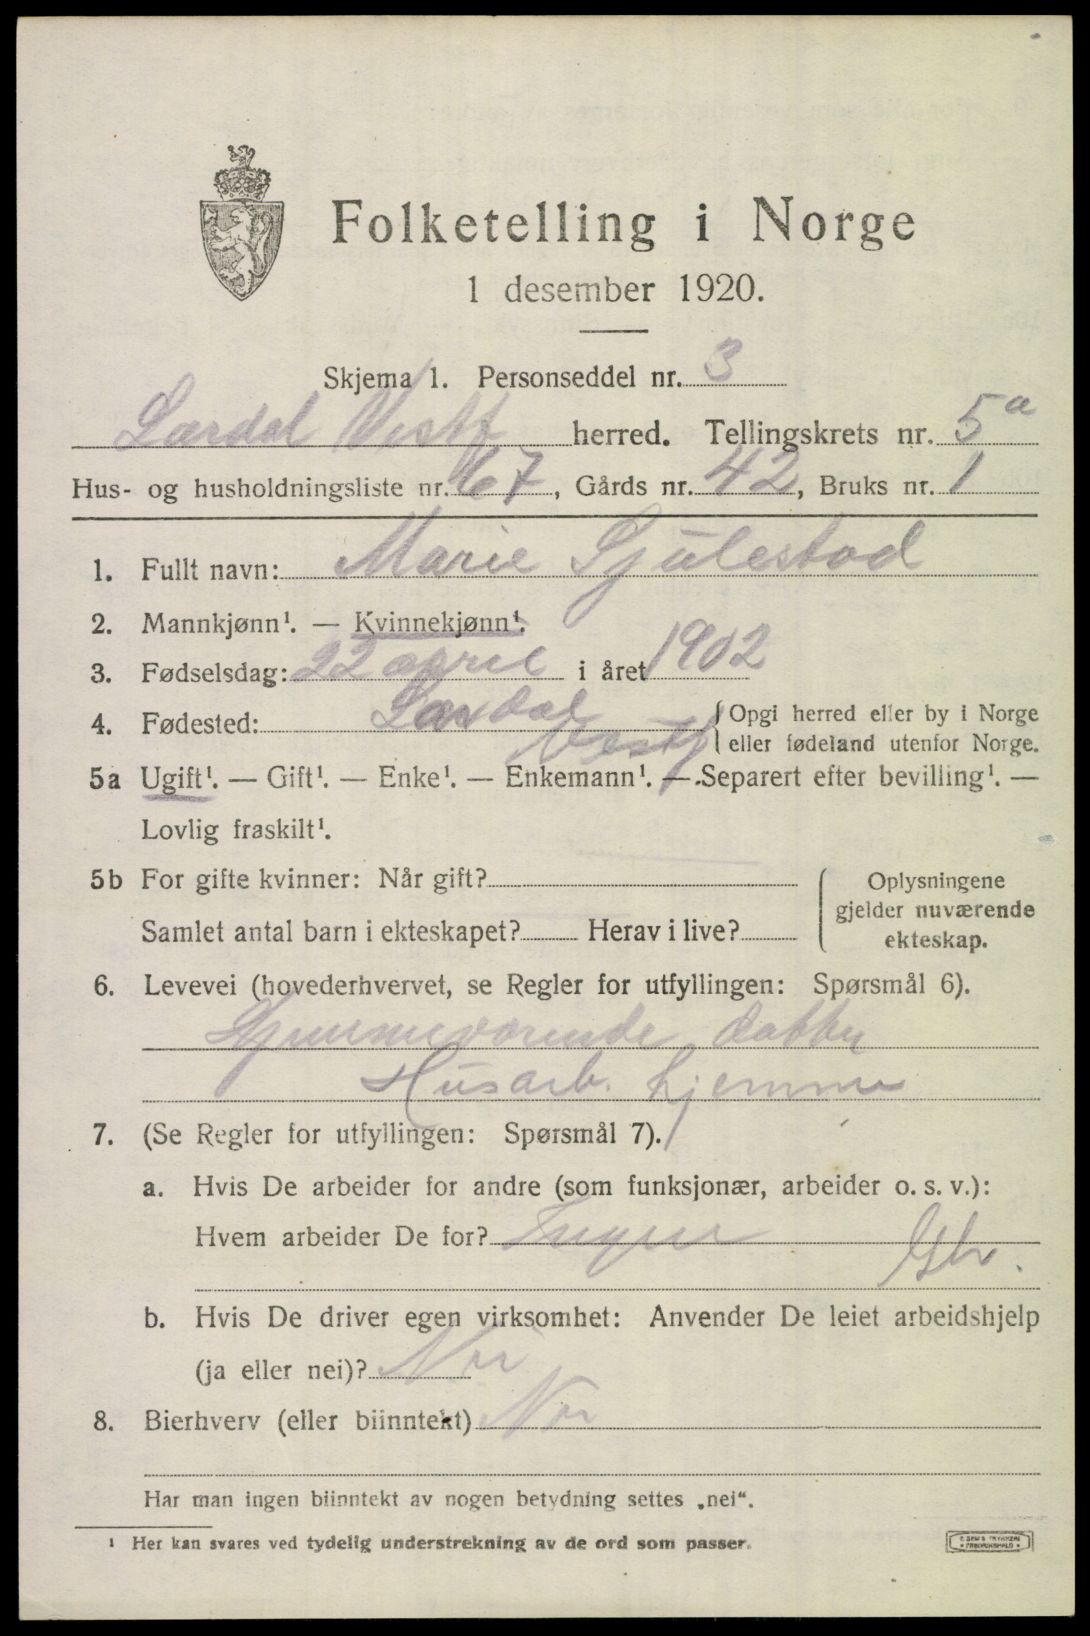 Folketelling i Norge
1 desember 1920.
Skjema 1. Personseddel nr. 3
Lardal Vestf herred. Tellingskrets nr. 5a
Hus- og husholdningsliste nr. 67, Gårds nr. 42, Bruks nr. 1
1. Fullt navn: Marie Sjulestad
2. Mannkjønn¹. — Kvinnekjønn¹.
3. Fødselsdag: 22 april i året 1902
4. Fødested: Lardal Vestf { Opgi herred eller by i Norge
eller fødeland utenfor Norge.
5a Ugift¹. — Gift¹. — Enke¹. — Enkemann¹. — Separert efter bevilling¹. —
Lovlig fraskilt¹.
5b For gifte kvinner: Når gift?
Samlet antal barn i ekteskapet? Herav i live?
Oplysningene
gjelder nuværende
ekteskap.
6. Levevei (hovederhvervet, se Regler for utfyllingen: Spørsmål 6).
Hjemmeværende datter
Husarb. hjemme
7. (Se Regler for utfyllingen: Spørsmål 7).
a. Hvis De arbeider for andre (som funksjonær, arbeider o. s. v.):
Hvem arbeider De for? Ingen
b. Hvis De driver egen virksomhet: Anvender De leiet arbeidshjelp
(ja eller nei)? Nei
8. Bierhverv (eller biinntekt) Nei
Har man ingen biinntekt av nogen betydning settes „nei“.
¹ Her kan svares ved tydelig understrekning av de ord som passer.